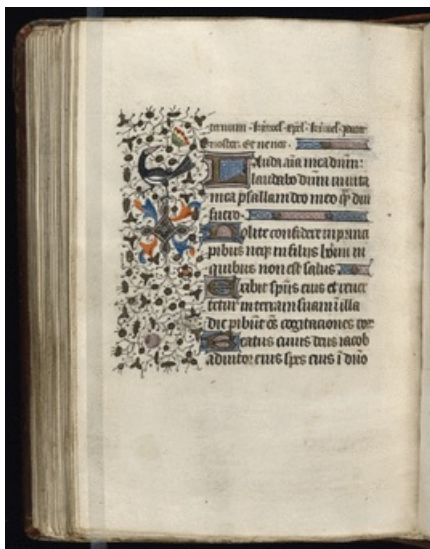 ternam. kyriel. xpel. kyriel. pater
noster. Et ne nos.
Lauda aīa mea dūm:
laudabo dūm in vita
mea psallam deo meo q̄ diu
fuero.
Nolite confidere in princi
pibus neq; in filijs hoīm in
quibus non est salus
Exibit spūs eius et rever
tetur in terram suam i illa
die pibūt oēs cogitaciones eor
Beatus cuius deus iacob
adiutor eius spes eius ī dūo